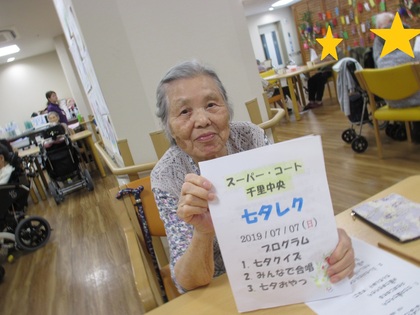 スーパー・コート
千里中央
七夕レク
2019/07/07(日)
プログラム
1. 七夕クイズ
2. みんなで合唱
3. 七夕おやつ